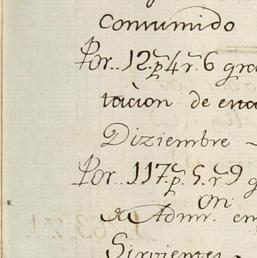 Consumido
Por..12.p.4.r.6 gra
tacion de ena
Diziembre -
Por..117.p.5.r.9 g
on
de Admr. em
Sirvientes